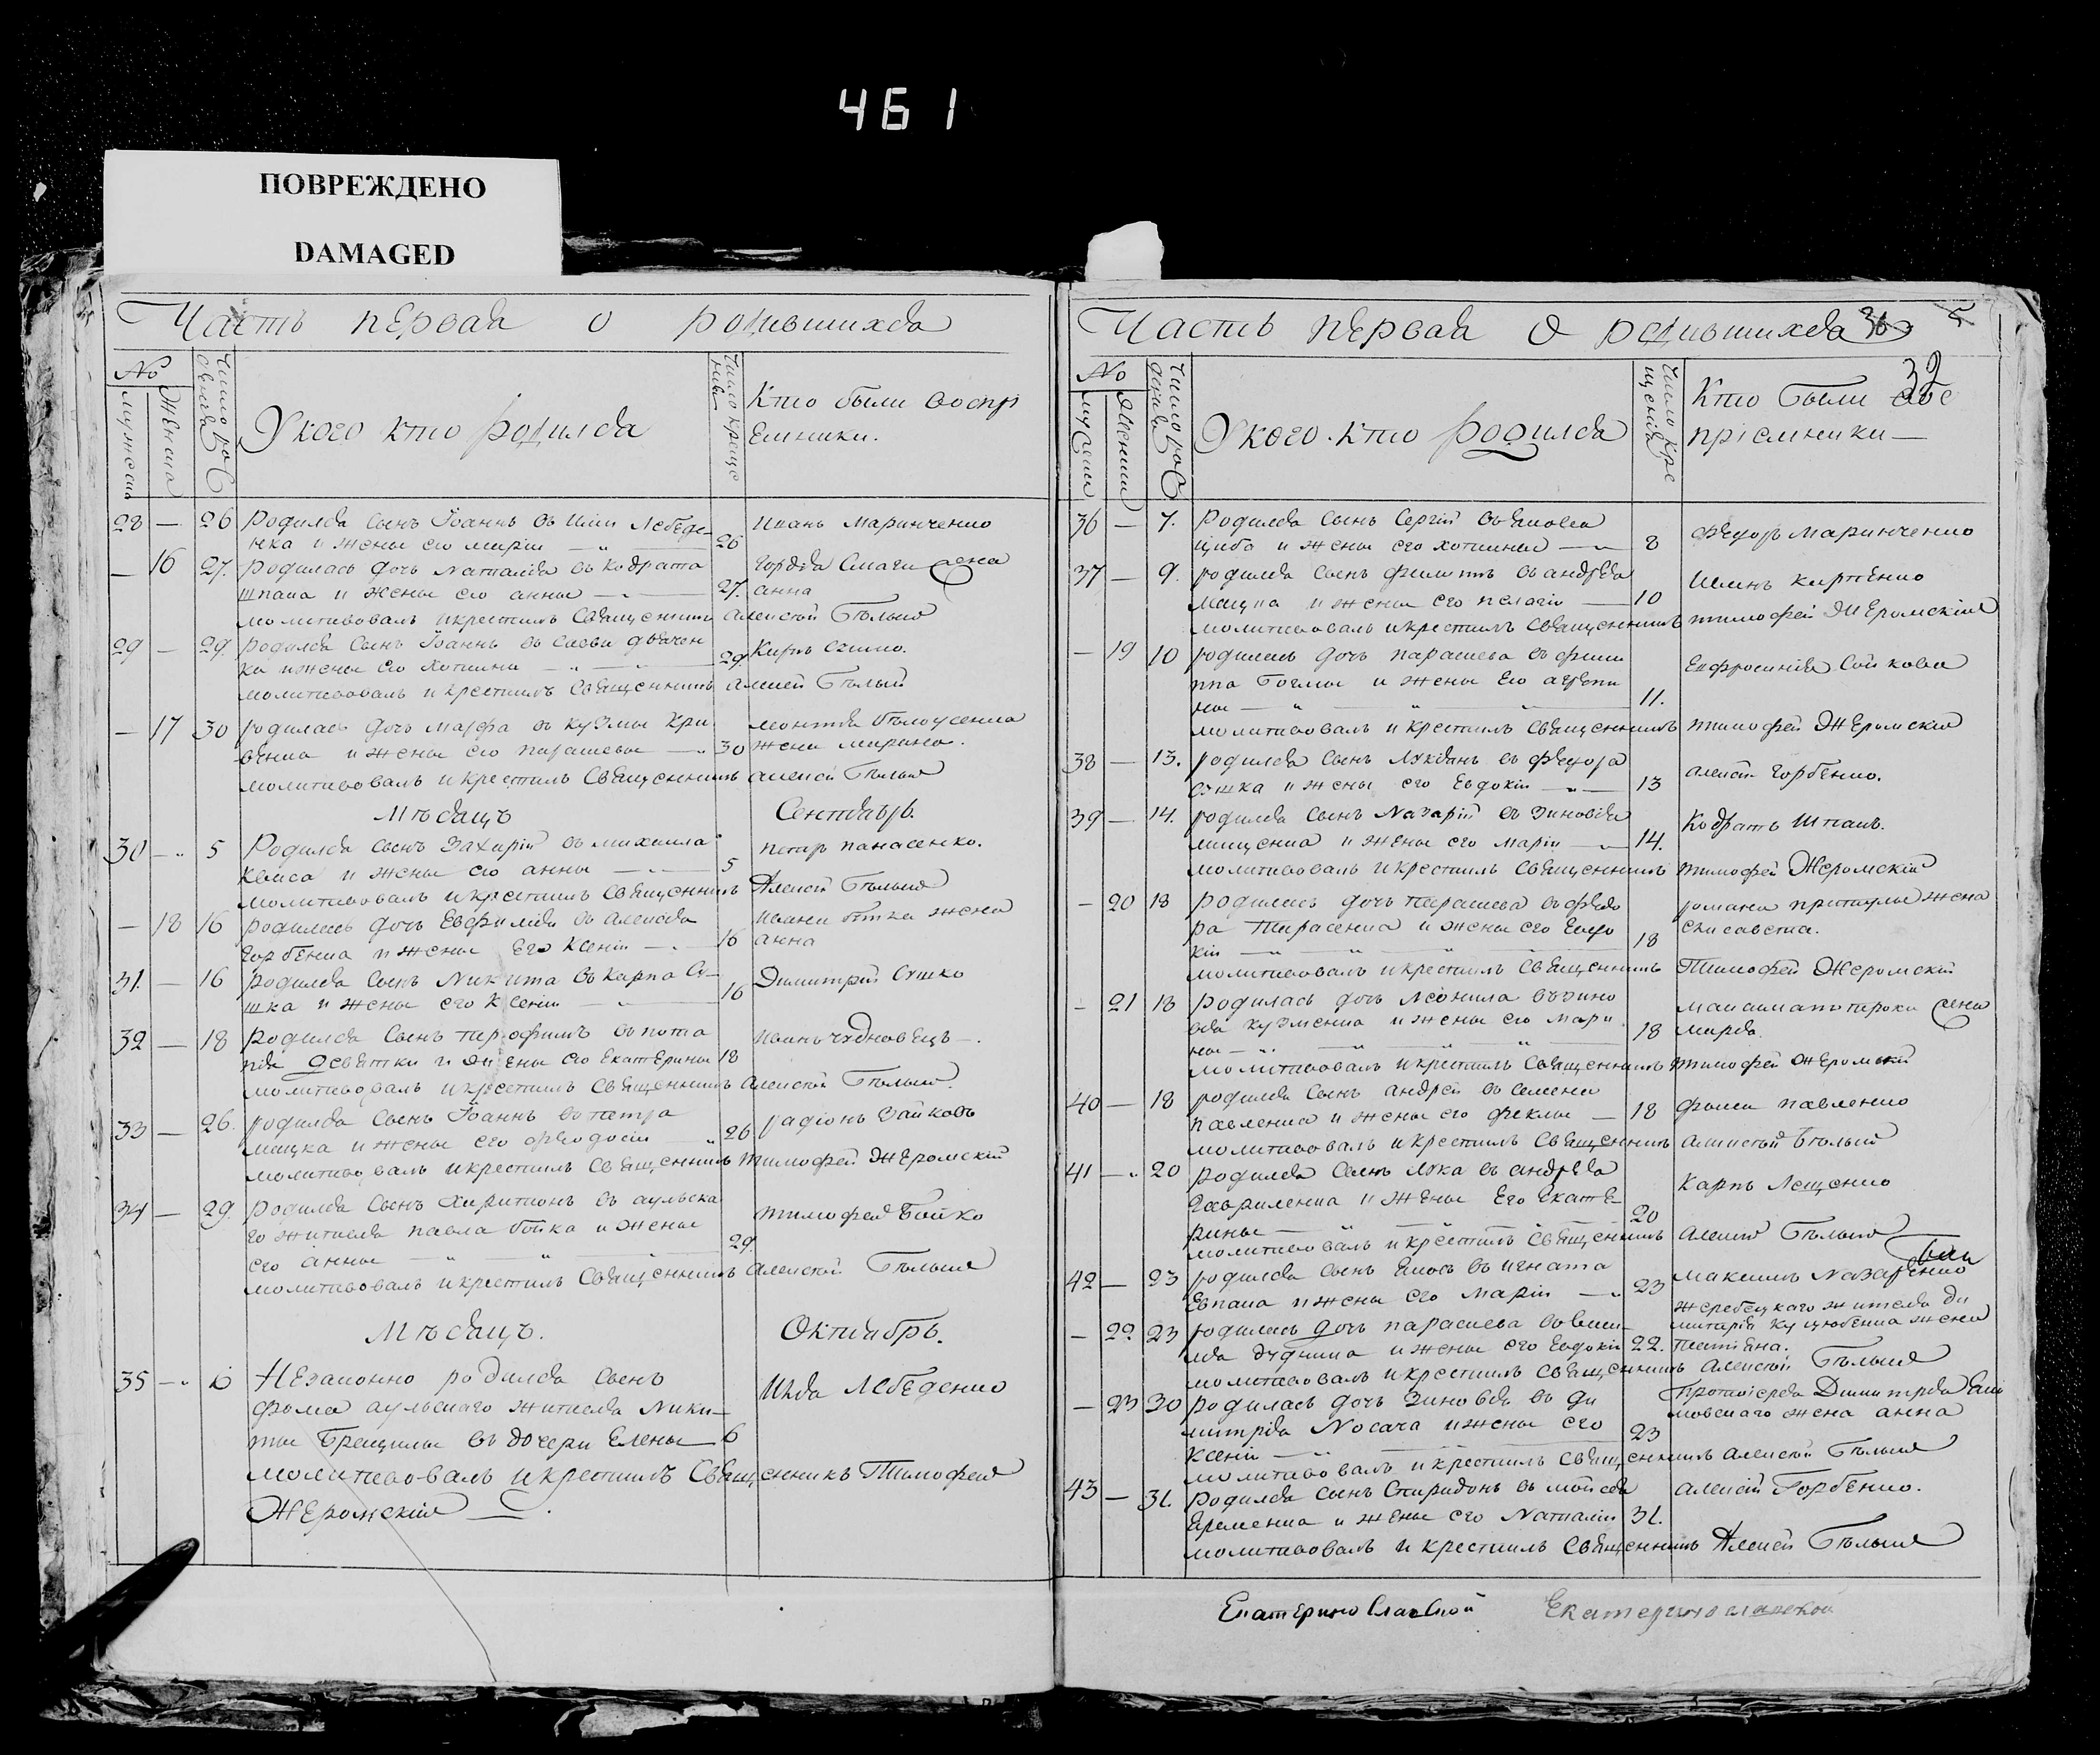 461
ПОВРЕЖДЕНО
DAMAGED
Часть первая о родившихся
№
мужеска
женска
Число рож
Укого кто родился
Число креще
Кто были воспр
Емники.
28 — 26 Родился сынъ Іоаннъ въ Иліи Лебеде
нка и жены его маріи — 26 Иванъ Маринченко
— 16 27. Родилась дочь Наталія въ Кодрата
шпака и жены его анны — 27. жена анна
молитвовалъ и крестилъ Священникъ алексѣй Бѣлый
29 — 29. Родился сынъ Іоаннъ въ
ка и жены его 29
молитвовалъ и крестилъ Священникъ алексѣй Бѣлый
— 17 30 родилась дочь марфа въ кузмы кри
венка и жены его парасевы — 30 белоусенка
жена марина.
молитвовалъ и крестилъ Священникъ алексѣй Бѣлый
Мѣсяцъ Сентябрь.
30 — 5 Родился сынъ Захарій въ михаила
и жены его анны — 5 петръ панасенко.
молитвовалъ и крестилъ Священникъ Алексѣй Бѣлый
— 18 16 родилась дочь Евфимія въ алексѣя
Горбенка и жены Его Ксеніи — 16 жена
анна
31. — 16 родился сынъ Никита въ Карпа Су
шка и жены его Ксеніи — 16 Димитрій Сушко
32 — 18 родился сынъ трофимъ въ пота
пія и жены его Екатерины 18 Иванъ чудновецъ —
молитвовалъ и крестилъ Священникъ алексѣй Бѣлый.
33 — 26. родился сынъ Іоаннъ въ петра
мацка и жены его феодосіи 26 радіонъ Зайковъ
молитвовалъ и крестилъ Священникъ тимофей Жеромскій
34 — 29. Родился сынъ Харитонъ въ аульска
го жителя павла бойка и жены
его анны — 29. тимофей Бойко
молитвовалъ и крестилъ Священникъ алексѣй Бѣлый
Мѣсяцъ. Октябрь.
35 — 6 Незаконно родился сынъ
фома аульскаго жителя Ники
ты въ дочери Елены — 6 Илія Лебеденко
молитвовалъ и крестилъ Священникъ Тимофей
Жеромскій —
Часть первая О родившихся
32
№
Число рож
Укого кто родился
Число кре
щенія
Кто были вос
пріемники —
36 — 7. Родился сынъ Сергій въ
Цыба и жены его — 8 Федоръ Маринченко
37 — 9. родился сынъ филиппъ въ андрея
мацка и жены его пелагіи — 10 карпенко
молитвовалъ и крестилъ Священникъ тимофей Жеромскій
— 19 10 родилась дочь парасева въ фили
ппа и жены Его агрепи
ны — 11. Евфросинія
молитвовалъ и крестилъ Священникъ тимофей Жеромскій
38 — 13. родился сынъ Лукіанъ въ федора
сушка и жены его Евдокіи — 13 алексѣй горбенко.
39 — 14. родился сынъ Назарій въ Зиновія
и жены его маріи — 14. Кодратъ шпакъ.
молитвовалъ и крестилъ Священникъ тимофей Жеромскій
— 20 18 родилась дочь парасева въ федо
ра Тарасенка и жены его Евдо
кіи — 18 романа притулы жена
елисавета.
молитвовалъ и крестилъ Священникъ Тимофей Жеромскій
— 21 18 родилась дочь леонила въ зино
вія кузменка и жены его мари
ны — 18 жена
марія.
молитвовалъ и крестилъ Священникъ тимофей Жеромскій
40 — 18 родился сынъ андрей въ семена
павленка и жены его феклы — 18 фома павленко
молитвовалъ и крестилъ Священникъ алексѣй бѣлый
41 — 20 родился сынъ лука въ андрея
Гавриленка и жены Его Екате
рины — 20 Карпъ Лещенко
молитвовалъ и крестилъ Священникъ алексѣй Бѣлый
42 — 23 родился сынъ въ игната
и жены его маріи — 23 максимъ Назаренко
— 22 23 родилась дочь парасева въ
дудника и жены его Евдокіи 22. жеребецкаго жителя ди
митрія жена
татіана.
молитвовалъ и крестилъ Священникъ алексѣй Бѣлый
— 23 30 родилась дочь Зиновія въ ди
митрія Носача и жены его
Ксеніи — 23 протоіерея Димитрія
жена анна
молитвовалъ и крестилъ Священникъ алексѣй Бѣлый
43 — 31. родился сынъ Спиридонъ въ мойсея
Еременка и жены его Наталіи 31. алексѣй Горбенко.
молитвовалъ и крестилъ Священникъ Алексѣй Бѣлый
Екатеринославской Екатеринославской